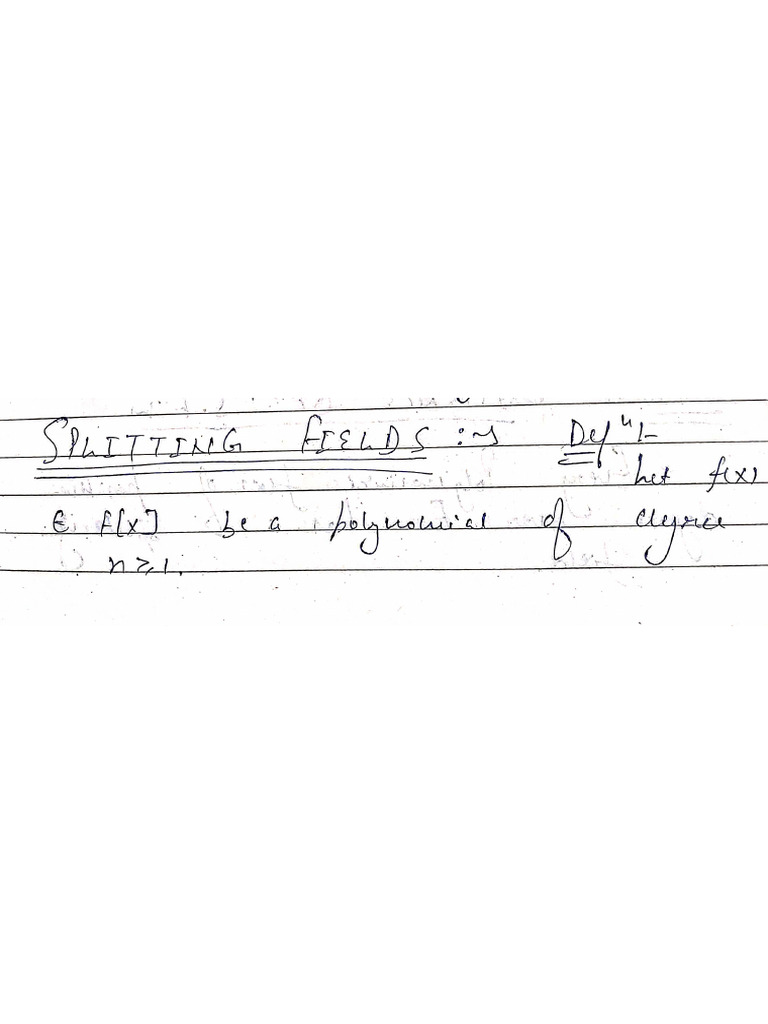 SPLITTING FIELDS :~ Defⁿ:-
Let f(x)
∈ F[x] be a polynomial of degree
n ≥ 1.